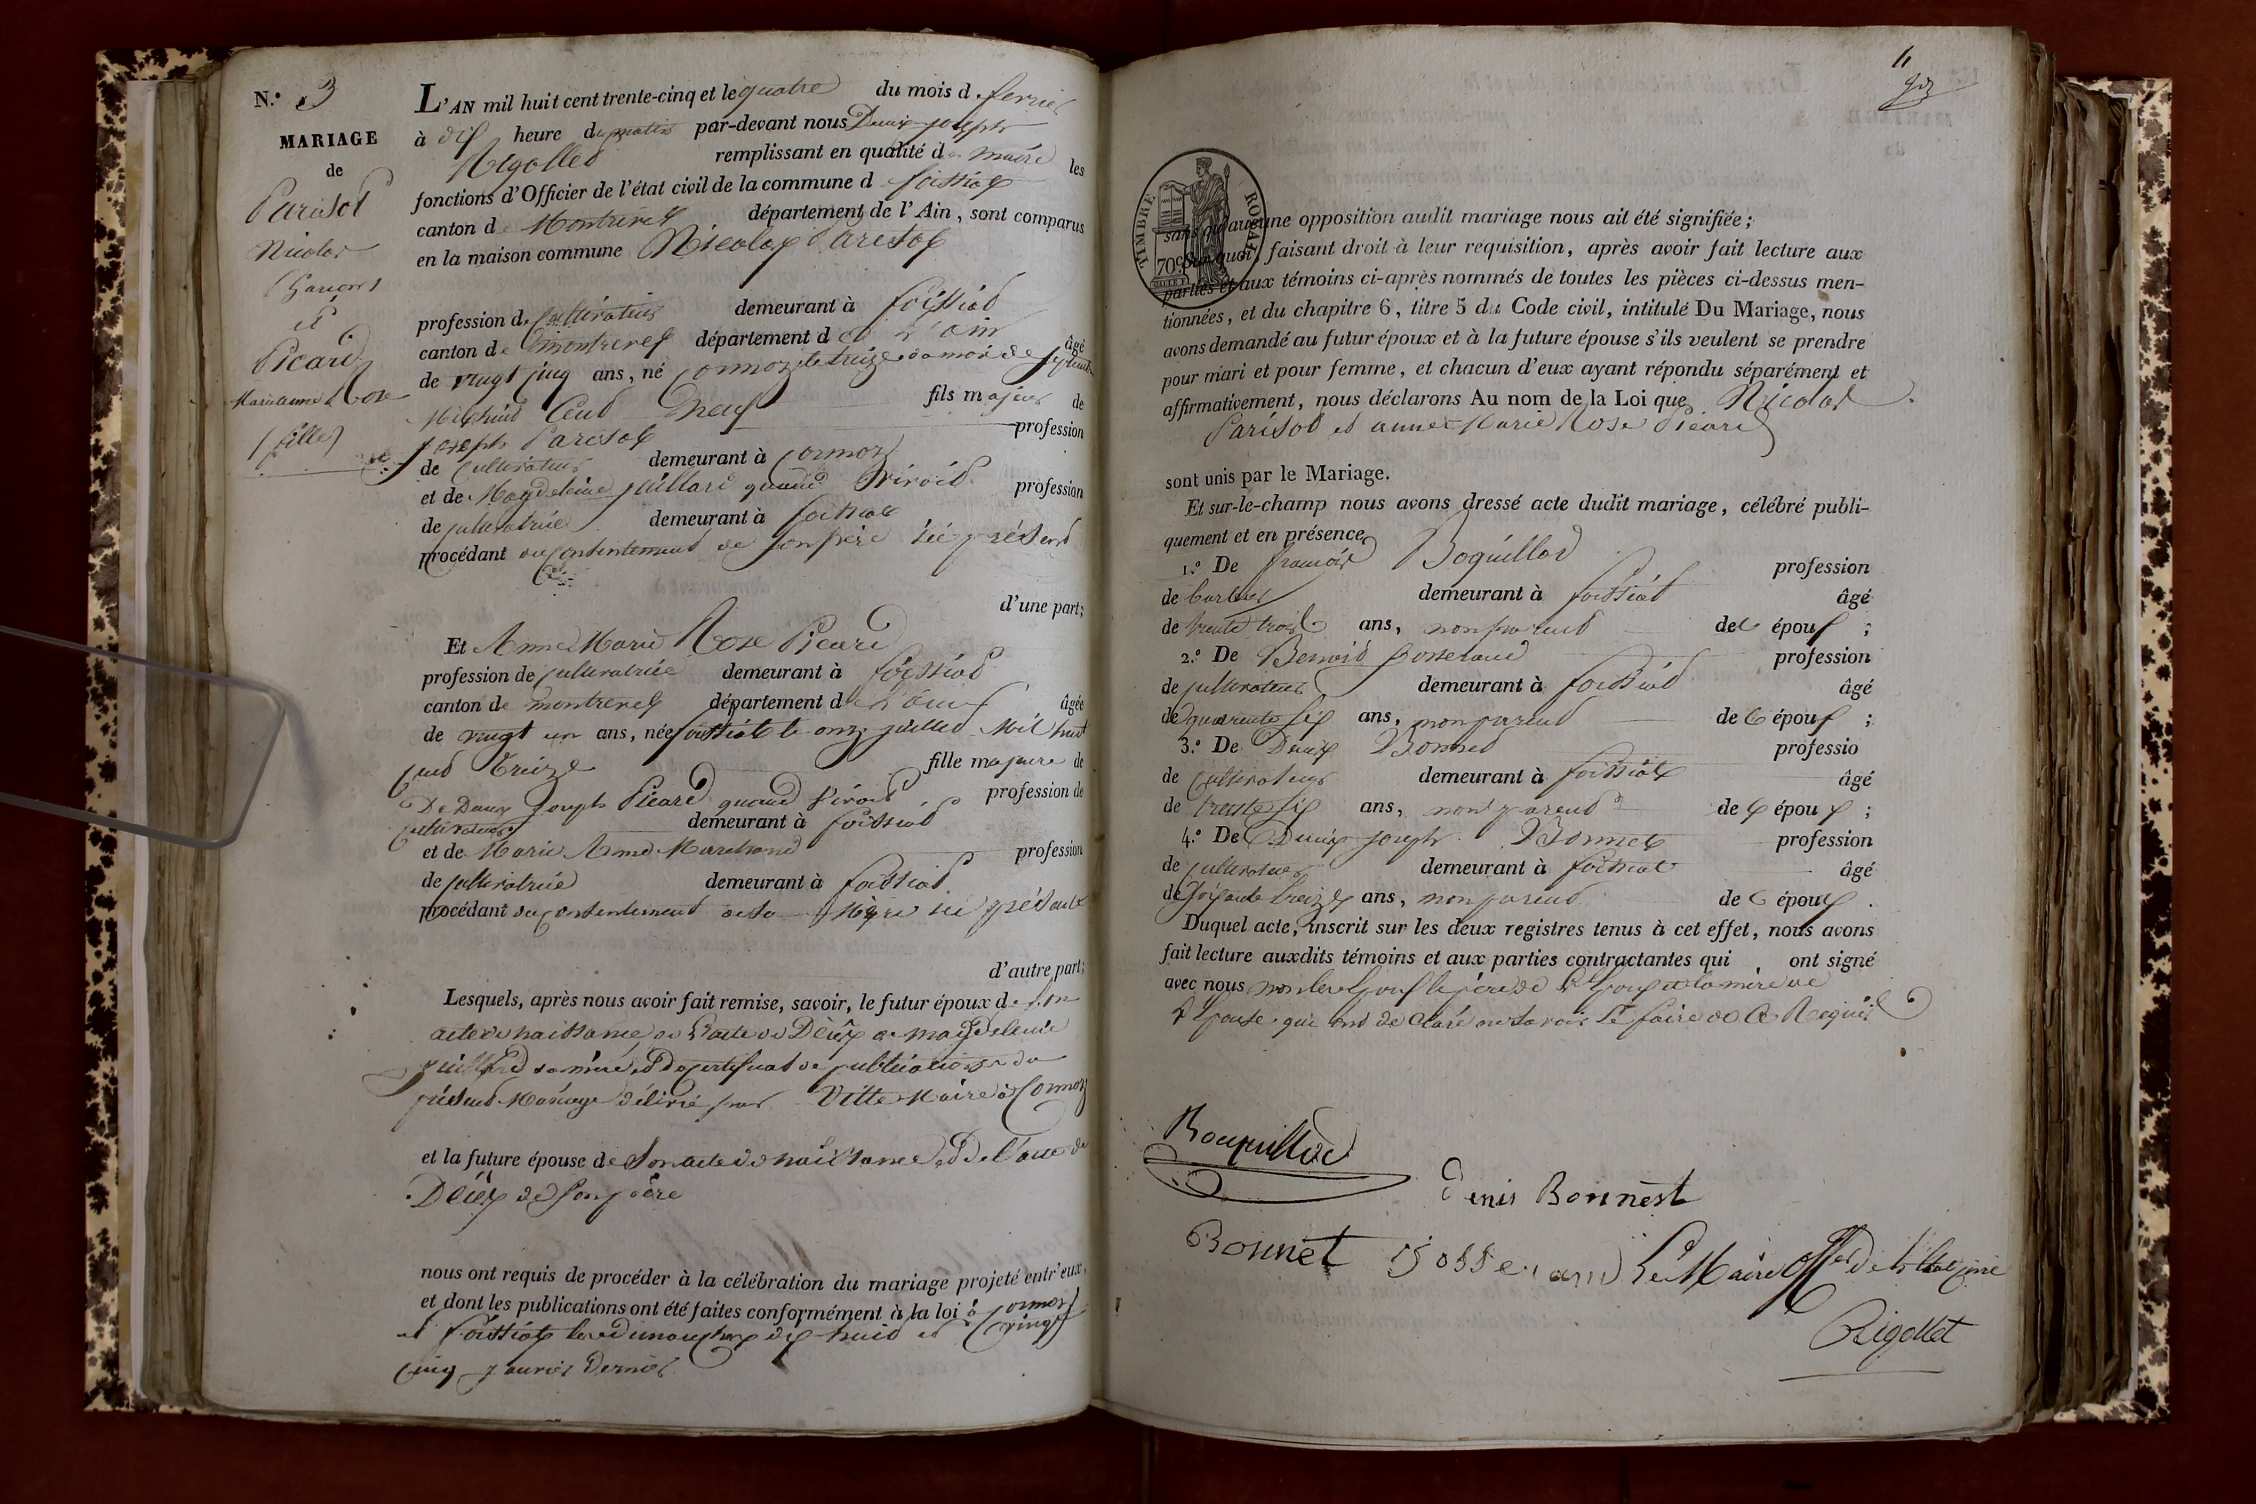 N.º 3
MARIAGE
de
Parisot
Nicolas
(Garçon)
et
Picard
Marie anne Rose
(fille)
L'AN mil huit cent trente-cinq et le quatre du mois de fevrier
à dix heure du matin par-devant nous Denis joseph
Rigollet remplissant en qualité de maire les
fonctions d'Officier de l'état civil de la commune d foissiat
canton de Montrevel département de l'Ain, sont comparus
en la maison commune Nicolas Parisot
profession de cultivateur demeurant à foissiat
canton de montrevel département de l'ain âgé
de vingt cinq ans, né cormoz le treize du mois de septembre
Mil huit Cent neuf fils majeur de
joseph Parisot profession
de cultivateur demeurant à cormoz
et de Magdeleine juillard quand vivoit profession
de cultivatrice demeurant à foissiat
procédant du consentement de son père ici présent
d'une part;
Et Anne Marie Rose Picard
profession de cultivatrice demeurant à foissiat
canton de montrevel département de l'ain âgée
de vingt un ans, née foissiat le onze juillet Mil huit
cent treize fille majeure de
De Joseph Picard quand vivoit profession de
cultivateur demeurant à foissiat
et de Marie Anne Marchand profession
de cultivatrice demeurant à foissiat
procédant du consentement de sa Mère ici présente
d'autre part;
Lesquels, après nous avoir fait remise, savoir, le futur époux de son
acte de naissance de l'acte de Décès de magdeleine
juillard sa mère et de certificat de publications du
présent Mariage délivré par Vitte Maire à Cormoz
et la future épouse de son acte de naissance, et de l'acte de
Décès de son père
nous ont requis de procéder à la célébration du mariage projeté entr'eux,
et dont les publications ont été faites conformément à la loi à cormoz
et foissiat les dimanches dix huit et vingt
cinq janvier dernier
TIMBRE ROYAL
70 c.
sans qu'aucune opposition audit mariage nous ait été signifiée;
Sur quoi, faisant droit à leur requisition, après avoir fait lecture aux
parties et aux témoins ci-après nommés de toutes les pièces ci-dessus men-
tionnées, et du chapitre 6, titre 5 du Code civil, intitulé Du Mariage, nous
avons demandé au futur époux et à la future épouse s'ils veulent se prendre
pour mari et pour femme, et chacun d'eux ayant répondu séparément et
affirmativement, nous déclarons Au nom de la Loi que Nicolas
Parisot et anne Marie Rose Picard
sont unis par le Mariage.
Et sur-le-champ nous avons dressé acte dudit mariage, célébré publi-
quement et en présence
1.º De françois Boquillod profession
de demeurant à foissiat âgé
de trente trois ans, non parent de l époux ;
2.º De Benoid Josserand profession
de cultivateur demeurant à foissiat âgé
de quarante six ans, non parent de l époux ;
3.º De Denis Bonnet professio
de cultivateur demeurant à foissiat âgé
de trente six ans, non parent de l époux ;
4.º De Denis joseph Bonnet profession
de cultivateur demeurant à foissiat âgé
de soixante treize ans, non parent de l époux .
Duquel acte, inscrit sur les deux registres tenus à cet effet, nous avons
fait lecture auxdits témoins et aux parties contractantes qui ont signé
avec nous non les époux le père de l'époux et la mère de
l'épouse qui ont déclaré ne savoir le faire de ce Requis
Bouquillod
Denis Bonnest
Bonnet Josserand Le Maire Off. de l'Etat civil
Rigollet